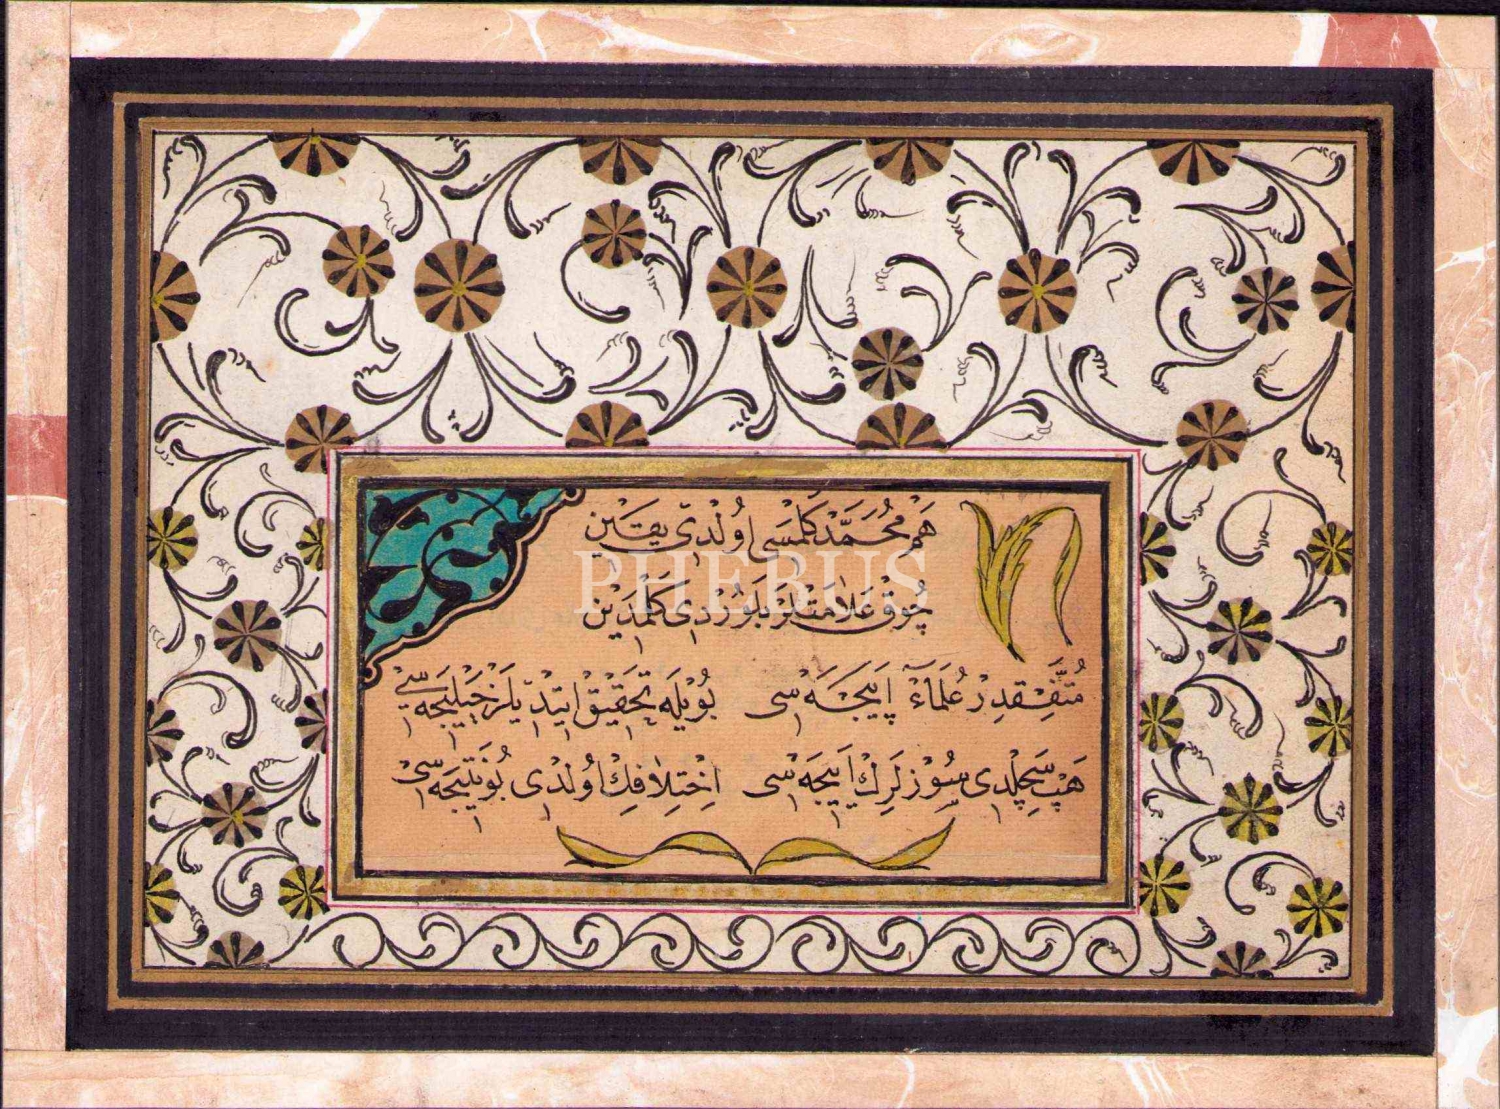 هَمْ مُحَمَّدْ كَلْمَسِی اُولْدِی یَقِینْ
PHEBUS
چُوقْ عَلَامَتْلَرْ بَلُورْدِی كَلْمَدِینْ
مُتَّفِقْدِرْ عُلَمَآءْ اَپَیِیجَهْ سِی بُویْلَهْ تَحْقِیقْ اِیتْدِیلَرْ خَیْلِیجَهْ سِی
هَپْ سَچِلْدِی سُوزْلَرِكْ اَیِیجَهْ سِی اِخْتِلَافِكْ اُولْدِی بُو نَتِیجَهْ سِی